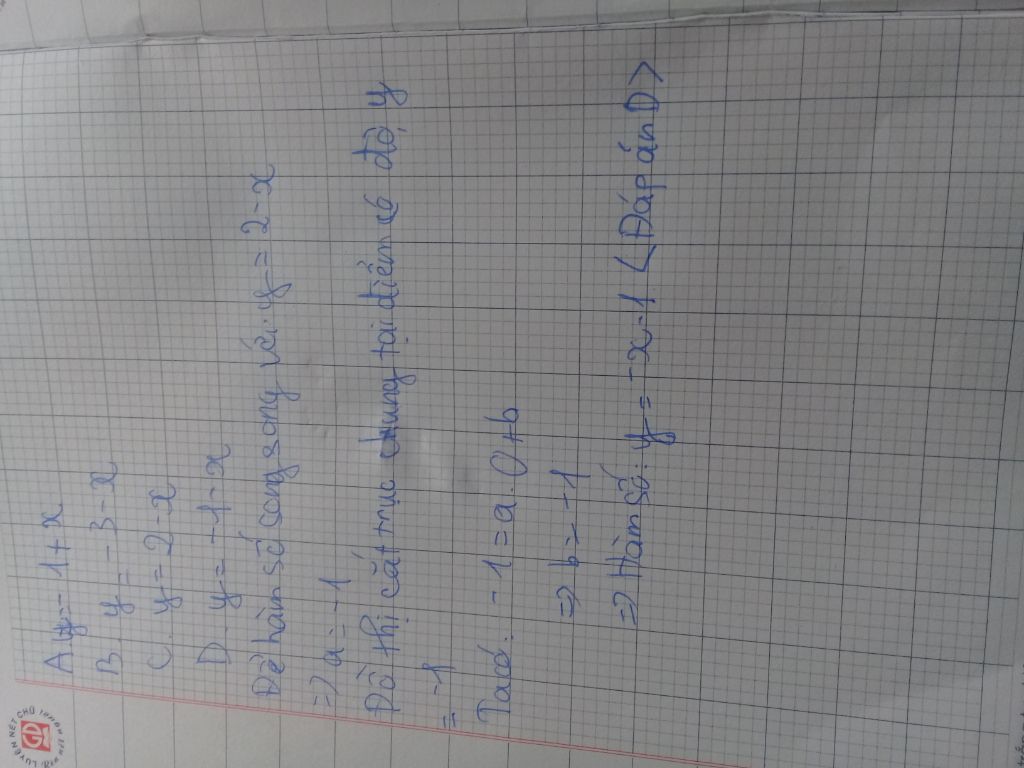 A y = -1 + x
B. y = -3 - x
C. y = 2 - x
D. y = -1 - x
Để hàm số song song với y = 2 - x
=> a = -1
Đồ thị cắt trục chung tại điểm có độ y
= -1
Ta có: -1 = a. 0 + b
=> b = -1
=> Hàm số: y = -x - 1. < Đáp án D >
LUYỆN NÉT CHỮ